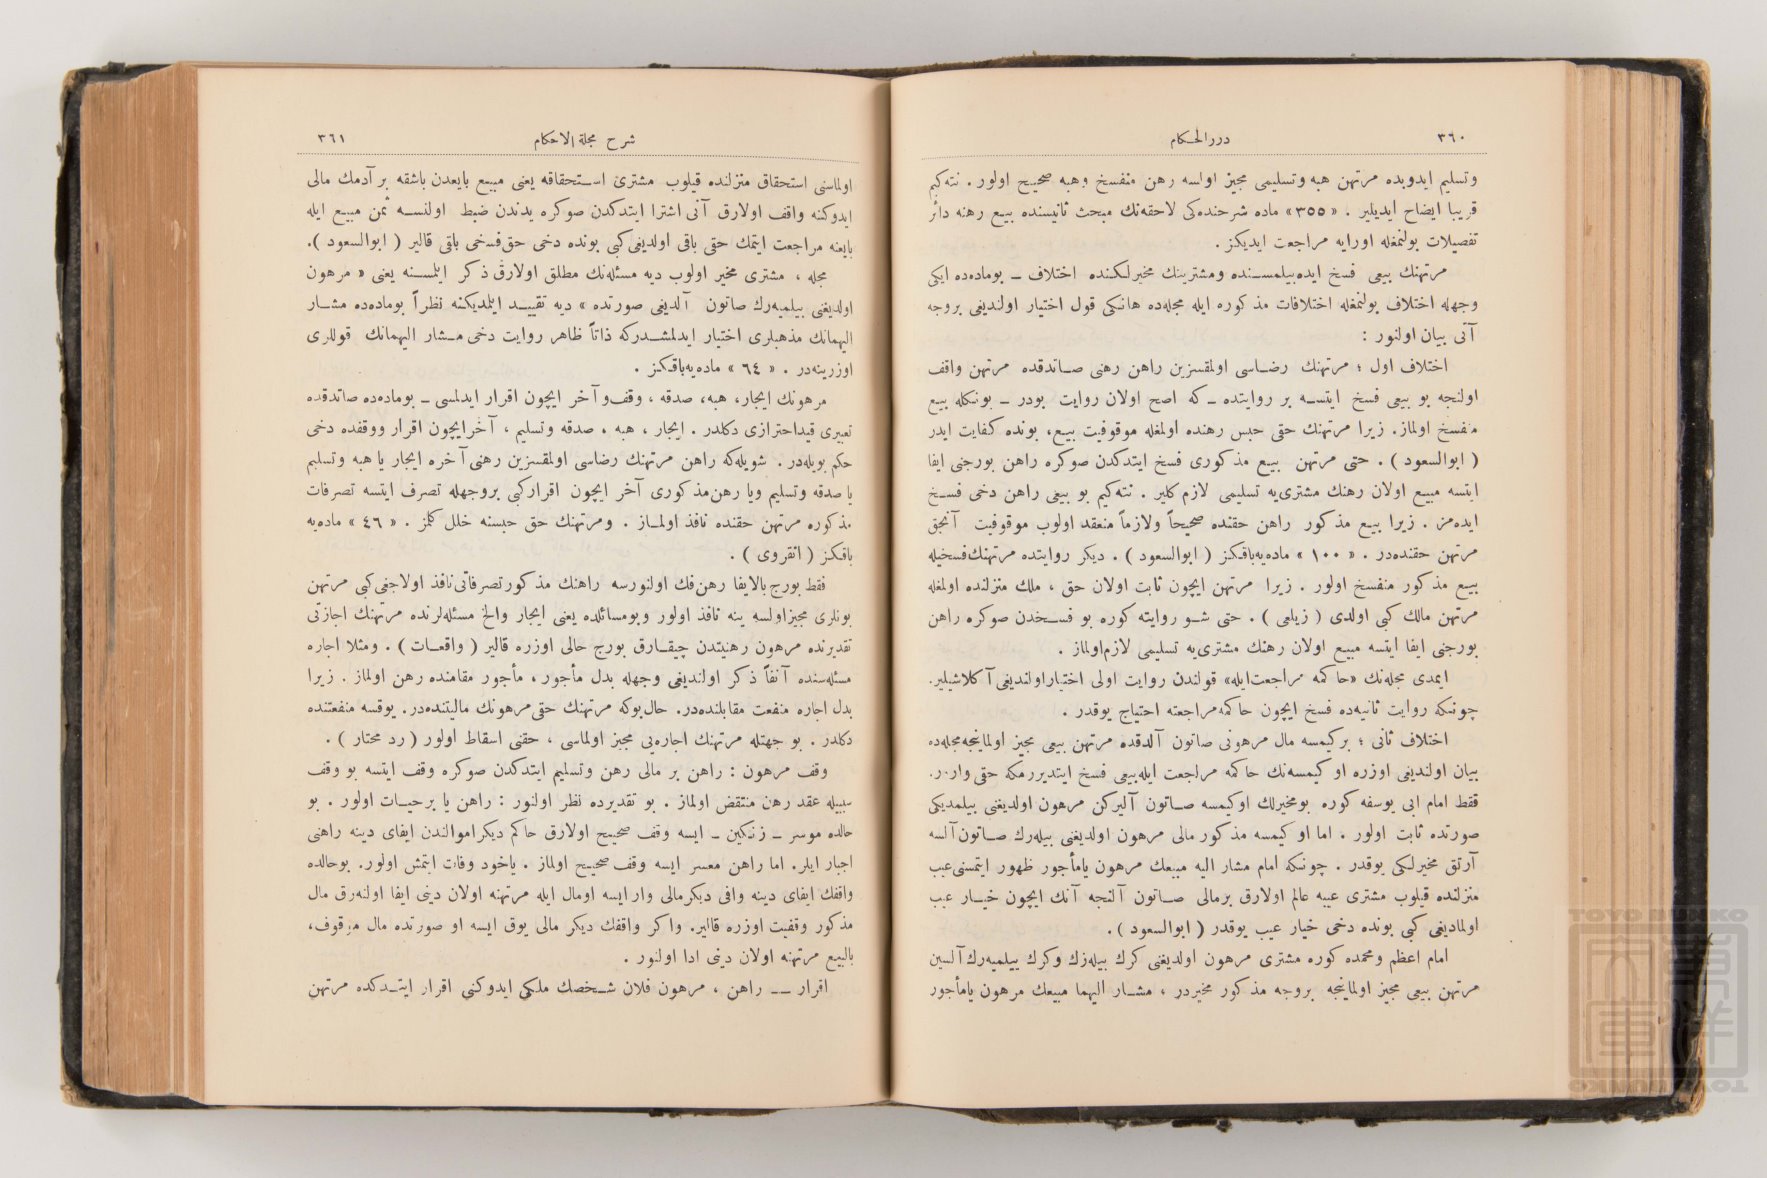 ٣٦٠
دررالحكام
وتسليم ايدوبده مرتهن هبه وتسليمى مجيز اولسه رهن منفسخ وهبه صحيح اولور . نته‌كيم
قريبا ايضاح ايديلير . « ٣٥٥ » ماده شرحنده‌كى لاحقه‌نك مبحث ثانيسنده بيع رهنه دائر
تفصيلات بولنمغله اورايه مراجعت ايديكز .
مرتهنك بيعى فسخ ايده‌بيلمسنده ومشترينك مخيرلكنده اختلاف ــ بوماده‌ده ايكى
وجهله اختلاف بولنمغله اختلافات مذكوره ايله مجله‌ده هانكى قول اختيار اولنديغى بروجه
آتى بيان اولنور :
اختلاف اول ؛ مرتهنك رضاسى اولمقسزين راهن رهنى صاتدقده مرتهن واقف
اولنجه بو بيعى فسخ ايتسه بر روايتده ــ كه اصح اولان روايت بودر ــ بونكله بيع
منفسخ اولماز. زيرا مرتهنك حقى حبس رهنده اولمغله موقوفيت بيع، بونده كفايت ايدر
( ابوالسعود ) . حتى مرتهن بيع مذكورى فسخ ايتدكدن صوكره راهن بورجنى ايفا
ايتسه مبيع اولان رهنك مشترى‌يه تسليمى لازم كلير . نته‌كيم بو بيعى راهن دخى فسخ
ايده‌مز . زيرا بيع مذكور راهن حقنده صحيحاً ولازماً منعقد اولوب موقوفيت آنجق
مرتهن حقنده‌در . « ١٠٠ » ماده‌يه‌باقكز ( ابوالسعود ) . ديكر روايتده مرتهنك‌فسخيله
بيع مذكور منفسخ اولور . زيرا مرتهن ايچون ثابت اولان حق ، ملك منزلنده اولمغله
مرتهن مالك كبى اولدى ( زيلعى ) . حتى شو روايته كوره بو فسخدن صوكره راهن
بورجنى ايفا ايتسه مبيع اولان رهنك مشترى‌يه تسليمى لازم‌اولماز .
ايمدى مجله‌نك «حاكمه مراجعت‌ايله» قولندن روايت اولى اختياراولنديغى‌آكلاشيلير.
چونكه روايت ثانيه‌ده فسخ ايچون حاكمه‌مراجعته احتياج يوقدر .
اختلاف ثانى ؛ بركيمسه مال مرهونى صاتون آلدقده مرتهن بيعى مجيز اولماينجه‌مجله‌ده
بيان اولنديغى اوزره او كيمسه‌نك حاكمه مراجعت ايله‌بيعى فسخ ايتديرمكه حقى واردر.
فقط امام ابى يوسفه كوره بومخيرلك اوكيمسه صاتون آليركن مرهون اولديغنى بيلمديكى
صورتده ثابت اولور . اما او كيمسه مذكور مالى مرهون اولديغنى بيله‌رك صاتون‌آلسه
آرتق مخيرلكى يوقدر . چونكه امام مشار اليه مبيعك مرهون ياماٴجور ظهور ايتمسنى‌عيب
منزلنده قيلوب مشترى عيبه عالم اولارق برمالى صاتون آلنجه آنك ايچون خيار عيب
اولماديغى كبى بونده دخى خيار عيب يوقدر ( ابوالسعود ) .
امام اعظم ومحمده كوره مشترى مرهون اولديغنى كرك بيله‌رك وكرك بيلميه‌رك‌آلسين
مرتهن بيعى مجيز اولماينجه بروجه مذكور مخيردر ، مشار اليهما مبيعك مرهون ياماٴجور
٣٦١
شرح مجلة الاحكام
اولماسنى استحقاق منزلنده قيلوب مشترئ استحقاقه يعنى مبيع بايعدن باشقه بر آدمك مالى
ايدوكنه واقف اولارق آنى اشترا ايتدكدن صوكره يدندن ضبط اولنسه ثمن مبيع ايله
بايعنه مراجعت ايتمك حقى باقى اولديغى‌كبى بونده دخى حق‌فسخى باقى قالير ( ابوالسعود ).
مجله ، مشترى مخير اولوب ديه مسئله‌نك مطلق اولارق ذكر ايلمسنه يعنى « مرهون
اولديغنى بيلميه‌رك صاتون آلديغى صورتده » ديه تقييد ايلمديكنه نظراً بوماده‌ده مشار
اليهمانك مذهبلرى اختيار ايدلمشدركه ذاتاً ظاهر روايت دخى مشار اليهمانك قوللرى
اوزرينه‌در . « ٦٤ » ماده‌يه‌باقكز .
مرهونك ايجار، هبه، صدقه ، وقف‌وآخر ايچون اقرار ايدلمسى ــ بوماده‌ده صاتدقده
تعبيرى قيداحترازى دكلدر . ايجار ، هبه ، صدقه وتسليم ، آخرايچون اقرار ووقفده دخى
حكم بويله‌در . شويله‌كه راهن مرتهنك رضاسى اولمقسزين رهنى‌آخره ايجار يا هبه وتسليم
يا صدقه وتسليم ويا رهن‌مذكورى آخر ايچون اقراركبى بروجهله تصرف ايتسه تصرفات
مذكوره مرتهن حقنده نافذ اولماز . ومرتهنك حق حبسنه خلل كلمز . « ٤٦ » ماده‌يه
باقكز ( انقروى ) .
فقط بورج بالايفا رهن‌فك اولنورسه راهنك مذكورتصرفاتى‌نافذ اولاجغى‌كبى مرتهن
بونلرى مجيزاولسه ينه نافذ اولور وبومسائلده يعنى ايجار والخ مسئله‌لرنده مرتهنك اجازتى
تقديرنده مرهون رهنيتدن چيقارق بورج حالى اوزره قالير ( واقعات ) . ومثلا اجاره
مسئله‌سنده آنفاً ذكر اولنديغى وجهله بدل ماٴجور ، ماٴجور مقامنده رهن اولماز . زيرا
بدل اجاره منفعت مقابلنده‌در. حال‌بوكه مرتهنك حقى‌مرهونك ماليتنده‌در. يوقسه منفعتنده
دكلدر . بو جهتله مرتهنك اجاره‌يى مجيز اولماسى ، حقنى اسقاط اولور ( رد محتار ) .
وقف مرهون : راهن بر مالى رهن وتسليم ايتدكدن صوكره وقف ايتسه بو وقف
سببيله عقد رهن منتقض اولماز . بو تقديرده نظر اولنور : راهن يا برحيات اولور . بو
حالده موسر ــ زنكين ــ ايسه وقف صحيح اولارق حاكم ديكراموالندن ايفاى دينه راهنى
اجبار ايلر. اما راهن معسر ايسه وقف صحيح اولماز . ياخود وفات ايتمش اولور. بوحالده
واقفك ايفاى دينه وافى ديكرمالى وار ايسه اومال ايله مرتهنه اولان دينى ايفا اولنه‌رق مال
مذكور وقفيت اوزره قالير. واكر واقفك ديكر مالى يوق ايسه او صورتده مال موقوف،
بالبيع مرتهنه اولان دينى ادا اولنور .
اقرار ــ راهن ، مرهون فلان شخصك ملكى ايدوكنى اقرار ايتدكده مرتهن
TOYO BUNKO